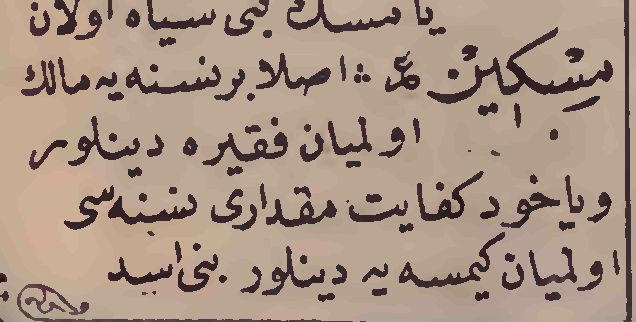 يا مسك بنى سياه اولان
مِسْكِينْ ع ؞ اصلا بر نسنه يه مالك
اولميان فقيره دينلور
ويا خود كفايت مقدارى نسنه سى
اولميان كيمسه يه دينلور بنى اسد